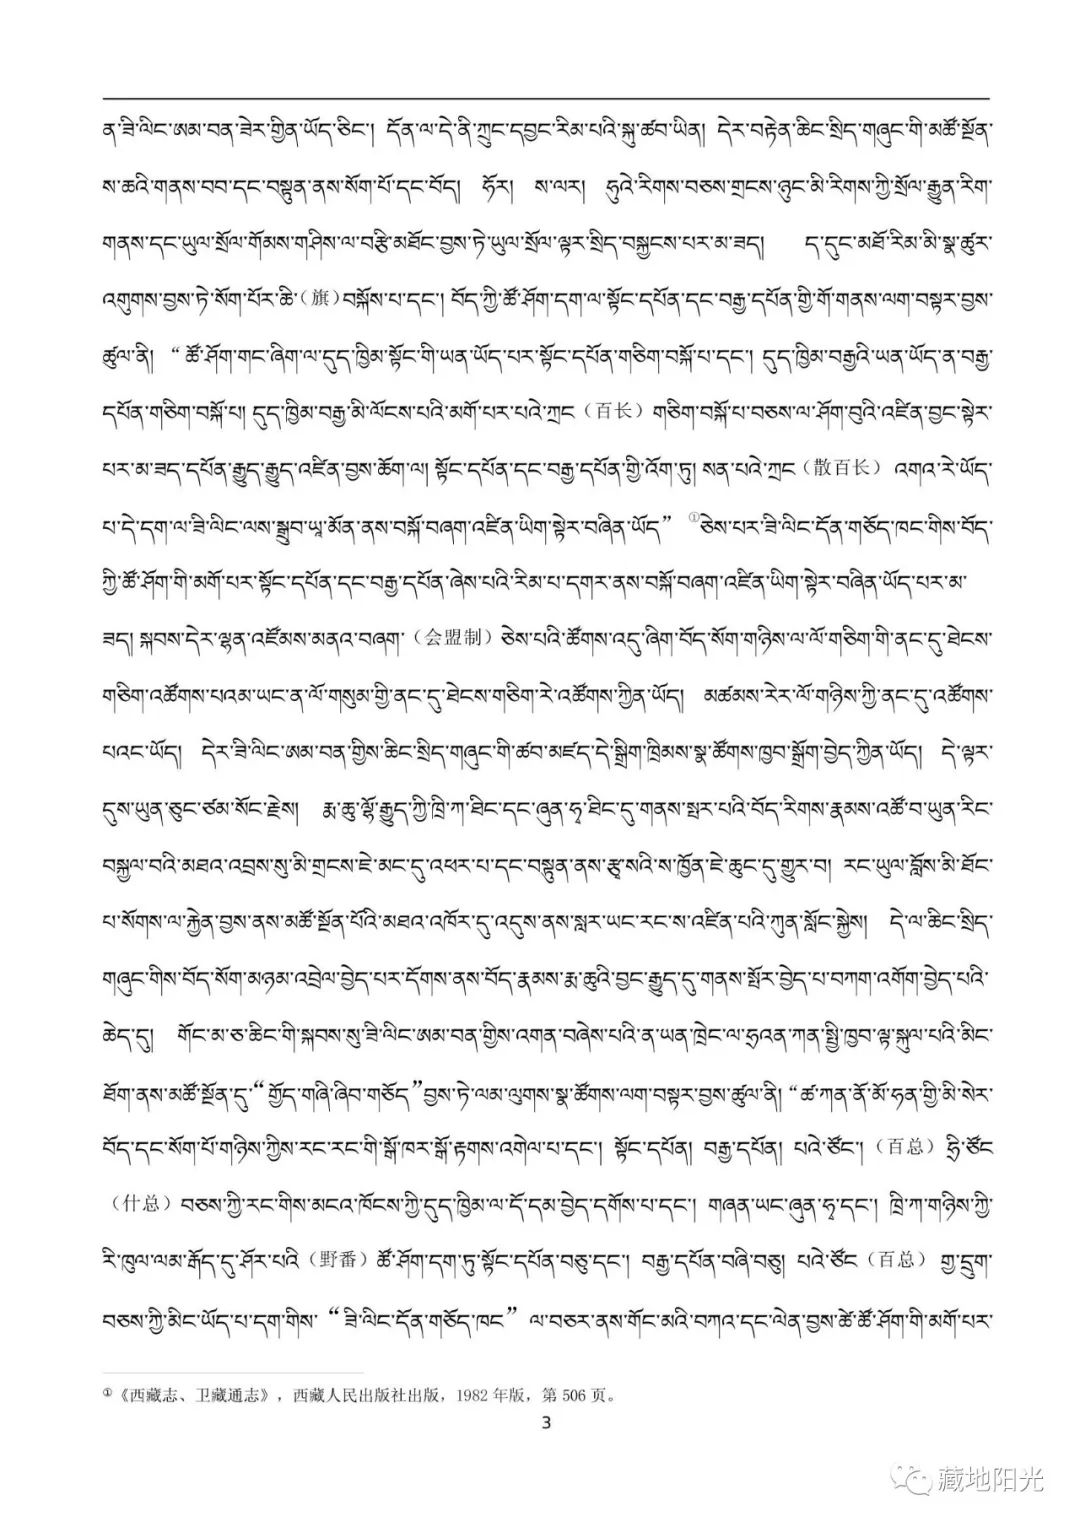 ན་ཟི་ལིང་ཨམ་བན་ཟེར་གྱིན་ཡོད་ཅིང་། དོན་ལ་དེ་ནི་ཀྲུང་དབྱང་རིམ་པའི་སྐུ་ཚབ་ཡིན། དེར་བརྟེན་ཆིང་སྲིད་གཞུང་གི་མཚོ་སྔོན་
ས་ཆའི་གནས་བབ་དང་བསྟུན་ནས་སོག་པོ་དང་བོད། ཧོར། ས་ལར། ཧུའེ་རིགས་བཅས་གྲངས་ཉུང་མི་རིགས་ཀྱི་སྲོལ་རྒྱུན་རིག་
གནས་དང་ཡུལ་སྲོལ་གོམས་གཤིས་ལ་བརྩི་མཐོང་བྱས་ཏེ་ཡུལ་སྲོལ་ལྟར་སྲིད་བསྐྱངས་པར་མ་ཟད། ད་དུང་མཐོ་རིམ་མི་སྣ་ཚུར་
འགུགས་བྱས་ཏེ་སོག་པོར་ཆི་（旗）བསྐོས་པ་དང་། བོད་ཀྱི་ཚོ་ཤོག་དག་ལ་སྟོང་དཔོན་དང་བརྒྱ་དཔོན་གྱི་གོ་གནས་ལག་བསྟར་བྱས་
ཚུལ་ནི། “ ཚོ་ཤོག་གང་ཞིག་ལ་དུད་ཁྱིམ་སྟོང་གི་ཡན་ཡོད་པར་སྟོང་དཔོན་གཅིག་བསྐོ་པ་དང་། དུད་ཁྱིམ་བརྒྱའི་ཡན་ཡོད་ན་བརྒྱ་
དཔོན་གཅིག་བསྐོ་པ། དུད་ཁྱིམ་བརྒྱ་མི་ལོངས་པའི་མགོ་པར་པའེ་ཀྲང（百长）གཅིག་བསྐོ་པ་བཅས་ལ་ཤོག་བུའི་འཛིན་བྱང་སྟེར་
པར་མ་ཟད་དཔོན་རྒྱུད་རྒྱུད་འཛིན་བྱས་ཆོག་ལ། སྟོང་དཔོན་དང་བརྒྱ་དཔོན་གྱི་འོག་ཏུ། སན་པའེ་ཀྲང（散百长）འགའ་རེ་ཡོད་
པ་དེ་དག་ལ་ཟི་ལིང་ལས་སྒྲུབ་ཡཱ་མོན་ནས་བསྐོ་བཞག་འཛིན་ཡིག་སྟེར་བཞིན་ཡོད” ①ཅེས་པར་ཟི་ལིང་དོན་གཅོད་ཁང་གིས་བོད་
ཀྱི་ཚོ་ཤོག་གི་མགོ་པར་སྟོང་དཔོན་དང་བརྒྱ་དཔོན་ཞེས་པའི་རིམ་པ་དགར་ནས་བསྐོ་བཞག་འཛིན་ཡིག་སྟེར་བཞིན་ཡོད་པར་མ་
ཟད། སྐབས་དེར་ལྷན་འཛོམས་མནའ་བཞག་（会盟制）ཅེས་པའི་ཚོགས་འདུ་ཞིག་བོད་སོག་གཉིས་ལ་ལོ་གཅིག་གི་ནང་དུ་ཐེངས་
གཅིག་འཚོགས་པའམ་ཡང་ན་ལོ་གསུམ་གྱི་ནང་དུ་ཐེངས་གཅིག་རེ་འཚོགས་ཀྱིན་ཡོད། མཚམས་རེར་ལོ་གཉིས་ཀྱི་ནང་དུ་འཚོགས་
པའང་ཡོད། དེར་ཟི་ལིང་ཨམ་བན་གྱིས་ཆིང་སྲིད་གཞུང་གི་ཚབ་མཛད་དེ་སྒྲིག་ཁྲིམས་སྣ་ཚོགས་ཁྱབ་སྒྲོག་བྱེད་ཀྱིན་ཡོད། དེ་ལྟར་
དུས་ཡུན་ཅུང་ཙམ་སོང་རྗེས། རྨ་ཆུ་ལྷོ་རྒྱུད་ཀྱི་ཁྲི་ཀ་ཐིང་དང་ཞུན་ཧྭ་ཐིང་དུ་གནས་སྤར་པའི་བོད་རིགས་རྣམས་འཚོ་བ་ཡུན་རིང་
བསྐྱལ་བའི་མཐའ་འབྲས་སུ་མི་གྲངས་ཇེ་མང་དུ་འཕར་པ་དང་བསྟུན་ནས་རྩྭ་སའི་ས་ཁྱོན་ཇེ་ཆུང་དུ་གྱུར་བ། རང་ཡུལ་བློས་མི་ཐོང་
པ་སོགས་ལ་རྐྱེན་བྱས་ནས་མཚོ་སྔོན་པོའི་མཐའ་འཁོར་དུ་འདུས་ནས་སླར་ཡང་རང་ས་འཛིན་པའི་ཀུན་སློང་སྐྱེས། དེ་ལ་ཆིང་སྲིད་
གཞུང་གིས་བོད་སོག་མཉམ་འབྲེལ་བྱེད་པར་དོགས་ནས་བོད་རྣམས་རྨ་ཆུའི་བྱང་རྒྱུད་དུ་གནས་སྤོར་བྱེད་པ་བཀག་འགོག་བྱེད་པའི་
ཆེད་དུ། གོང་མ་ཅ་ཆིང་གི་སྐབས་སུ་ཟི་ལིང་ཨམ་བན་གྱིས་འགན་བཞེས་པའི་ན་ཡན་ཁྲེང་ལ་ཧྲའན་ཀན་སྤྱི་ཁྱབ་ལྟ་སྐུལ་པའི་མིང་
ཐོག་ནས་མཚོ་སྔོན་དུ་“གྱོད་གཞི་ཞིབ་གཅོད”བྱས་ཏེ་ལམ་ལུགས་སྣ་ཚོགས་ལག་བསྟར་བྱས་ཚུལ་ནི། “ཚ་ཀན་ནོ་མོ་ཧན་གྱི་མི་སེར་
བོད་དང་སོག་པོ་གཉིས་ཀྱིས་རང་རང་གི་སྒོ་ཁར་སྒོ་རྟགས་འགེལ་པ་དང་། སྟོང་དཔོན། བརྒྱ་དཔོན། པའེ་ཙོང་།（百总）ཧྲི་ཙོང
（什总）བཅས་ཀྱི་རང་གིས་མངའ་ཁོངས་ཀྱི་དུད་ཁྱིམ་ལ་དོ་དམ་བྱེད་དགོས་པ་དང་། གཞན་ཡང་ཞུན་ཧྭ་དང་། ཁྲི་ཀ་གཉིས་ཀྱི་
རི་ཁུལ་ལམ་རྒོད་དུ་ཤོར་པའི（野番）ཚོ་ཤོག་དག་ཏུ་སྟོང་དཔོན་བཅུ་དང་། བརྒྱ་དཔོན་བཞི་བཅུ། པའེ་ཙོང（百总）གྱ་དྲུག་
བཅས་ཀྱི་མིང་ཡོད་པ་དག་གིས་ “ཟི་ལིང་དོན་གཅོད་ཁང” ལ་བཅར་ནས་གོང་མའི་བཀའ་དང་ལེན་བྱས་ཚེ་ཚོ་ཤོག་གི་མགོ་པར་
①《西藏志、卫藏通志》，西藏人民出版社出版，1982 年版，第 506 页。
3
藏地阳光